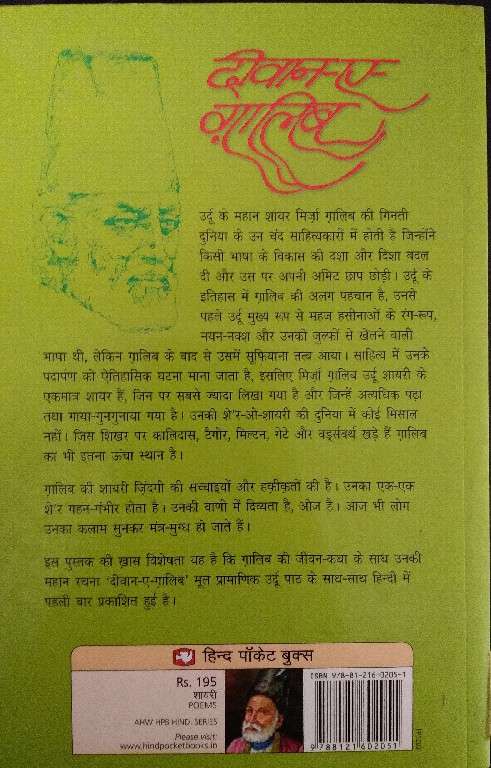 दीवान-ए-
ग़ालिब
उर्दू के महान शायर मिर्ज़ा ग़ालिब की गिनती
दुनिया के उन चंद साहित्यकारों में होती है जिन्होंने
किसी भाषा के विकास की दशा और दिशा बदल
दी और उस पर अपनी अमिट छाप छोड़ी। उर्दू के
इतिहास में ग़ालिब की अलग पहचान है, उनसे
पहले उर्दू मुख्य रूप से महज हसीनाओं के रंग-रूप,
नयन-नक्श और उनकी ज़ुल्फों से खेलने वाली
भाषा थी, लेकिन ग़ालिब के बाद से उसमें सूफियाना तत्व आया। साहित्य में उनके
पदार्पण को ऐतिहासिक घटना माना जाता है, इसलिए मिर्ज़ा ग़ालिब उर्दू शायरी के
एकमात्र शायर हैं, जिन पर सबसे ज्यादा लिखा गया है और जिन्हें अत्यधिक पढ़ा
तथा गाया-गुनगुनाया गया है। उनकी शे'र-ओ-शायरी की दुनिया में कोई मिसाल
नहीं। जिस शिखर पर कालिदास, टैगोर, मिल्टन, गेटे और वर्ड्सवर्थ खड़े हैं ग़ालिब
का भी इतना ऊंचा स्थान है।
ग़ालिब की शायरी ज़िंदगी की सच्चाइयों और हक़ीक़तों की है। उनका एक-एक
शे'र गहन-गंभीर होता है। उनकी वाणी में दिव्यता है, ओज है। आज भी लोग
उनका कलाम सुनकर मंत्र-मुग्ध हो जाते हैं।
इस पुस्तक की ख़ास विशेषता यह है कि ग़ालिब की जीवन-कथा के साथ उनकी
महान रचना 'दीवान-ए-ग़ालिब' मूल प्रामाणिक उर्दू पाठ के साथ-साथ हिन्दी में
पहली बार प्रकाशित हुई है।
हिन्द पॉकेट बुक्स
Rs. 195
शायरी
POEMS
AHW HPB HIND. SERIES
Please visit:
www.hindpocketbooks.in
ISBN 978-81-216-0205-1
9 788121 602051